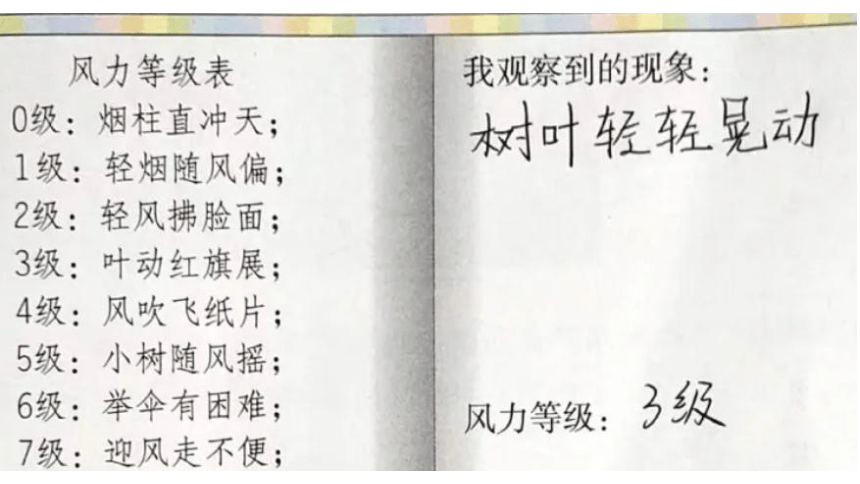 风力等级表
0级：烟柱直冲天；
1级：轻烟随风偏；
2级：轻风拂脸面；
3级：叶动红旗展；
4级：风吹飞纸片；
5级：小树随风摇；
6级：举伞有困难；
7级：迎风走不便；
我观察到的现象：
树叶轻轻晃动
风力等级：3级